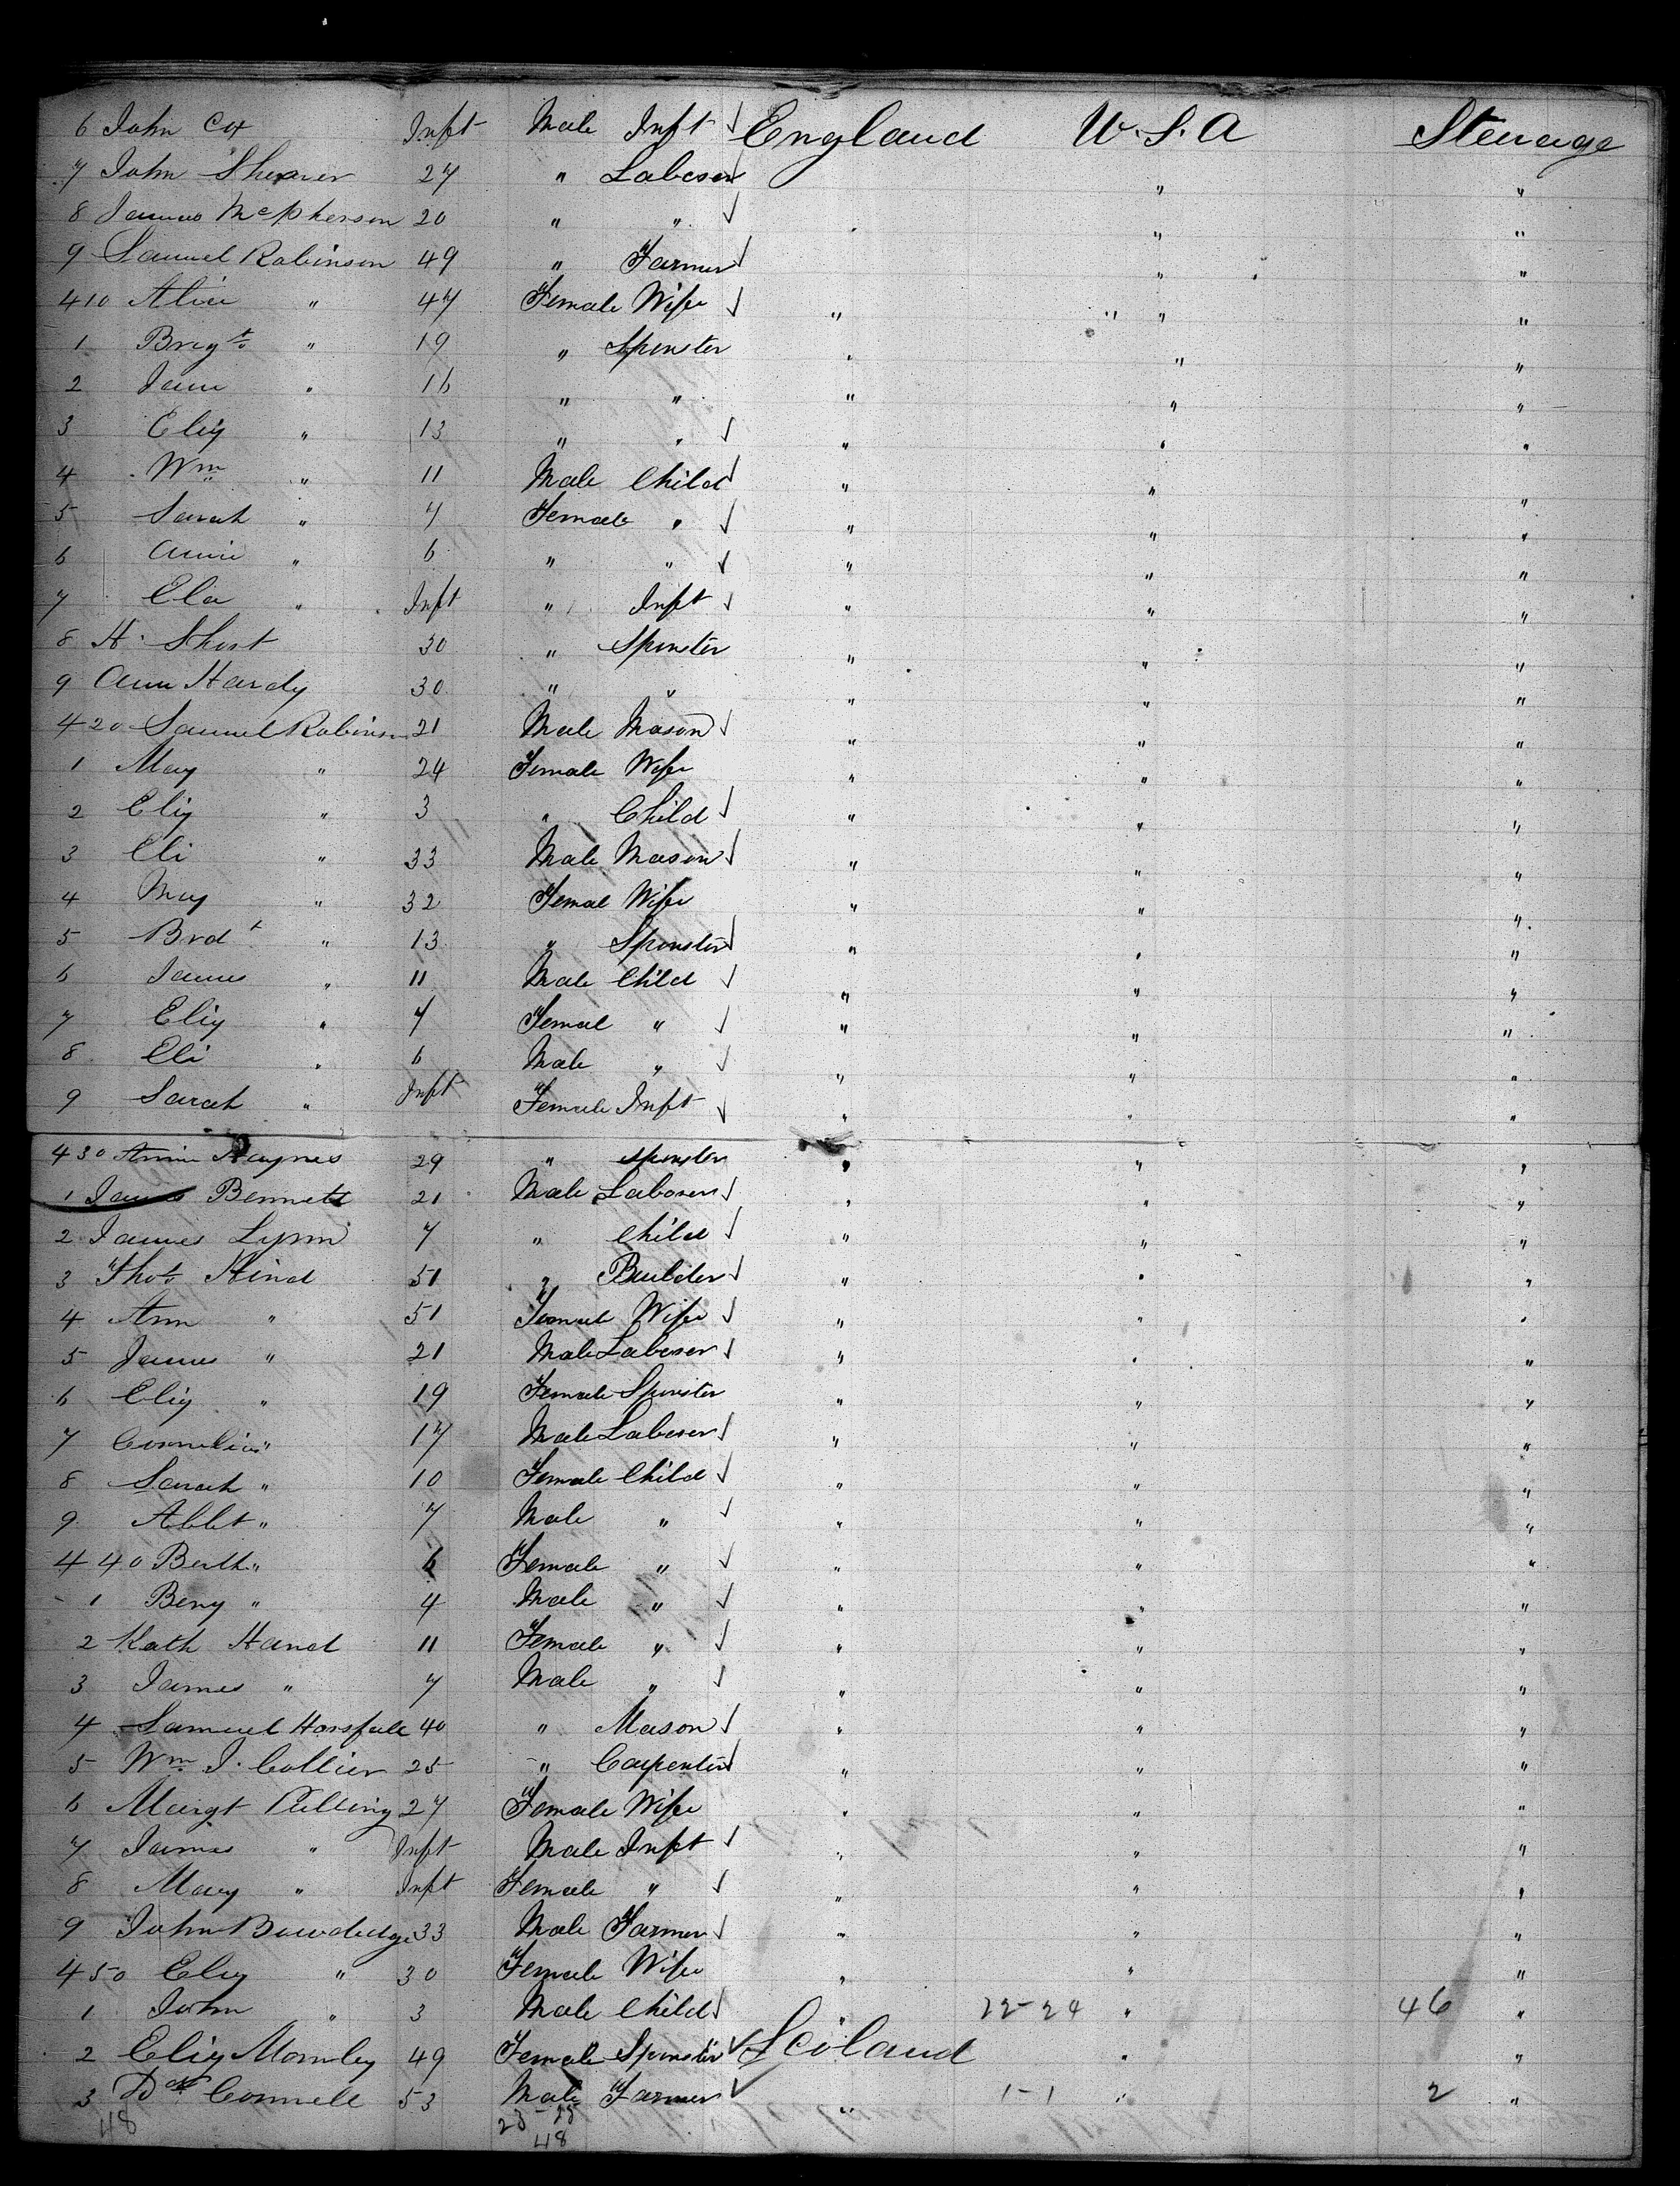 6 John Cox Inft Male Inft ✓ England U.S.A Steerage
7 John Shearer 27 " Laborer ✓ " "
8 James McPherson 20 " " ✓ " " "
9 Samuel Robinson 49 " Farmer ✓ " "
410 Alice " 47 Female Wife ✓ " " " "
1 Brigt " 19 " Spinster " " "
2 Jane " 16 " " " " "
3 Eliz " 13 " " ✓ " " "
4 Wm " 11 Male Child ✓ " " "
5 Sarah " 7 Female " ✓ " " "
6 Annie " 6 " " ✓ " " "
7 Ela " Inft " Inft ✓ " " "
8 H. Short 30 " Spinster " " "
9 Ann Hardy 30 " " " " "
420 Samuel Robinson 21 Male Mason ✓ " " "
1 May " 24 Female Wife " " "
2 Eliz " 3 " Child ✓ " " "
3 Eli " 33 Male Mason ✓ " " "
4 May " 32 Femal Wife " " "
5 Brdt " 13 " Spinster ✓ " " "
6 James " 11 Male Child ✓ " " "
7 Eliz " 7 Femal " ✓ " " "
8 Eli " 6 Male " ✓ " " "
9 Sarah " Inft Female Inft ✓ " " "
430 Annie Haynes 29 " Spinster " " "
1 James Bennett 21 Male Laborer ✓ " " "
2 James Lynn 7 " Child ✓ " " "
3 Thos Hind 51 " Builder ✓ " " "
4 Ann " 51 Female Wife ✓ " " "
5 James " 21 Male Laborer ✓ " " "
6 Eliz " 19 Female Spinster " " "
7 Cornelius " 17 Male Laborer ✓ " " "
8 Sarah " 10 Female Child ✓ " " "
9 Albt " 7 Male " ✓ " " "
440 Berth " 6 Female " ✓ " " "
1 Benj " 4 Male " ✓ " " "
2 Kath Hand 11 Female " ✓ " " "
3 James " 7 Male " ✓ " " "
4 Samuel Horsfall 40 " Mason ✓ " " "
5 Wm J. Collier 25 " Carpenter ✓ " " "
6 Margt Pilling 27 Female Wife " " "
7 James " Inft Male Inft ✓ " " "
8 Mary " Inft Female " ✓ " " "
9 John Bowdidge 33 Male Farmer ✓ " " "
450 Eliz " 30 Female Wife " " "
1 John " 3 Male Child ✓ " 22-24 " 46 "
2 Eliz Mornley 49 Female Spinster ✓ Scotland " "
3 Connell 53 Male Farmer ✓ " 1-1 " 2 "
48 23-25
48